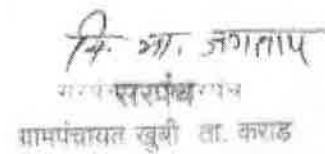 वि. आ. जगताप
सरपंच
ग्रामपंचायत खुबी ता. कराड